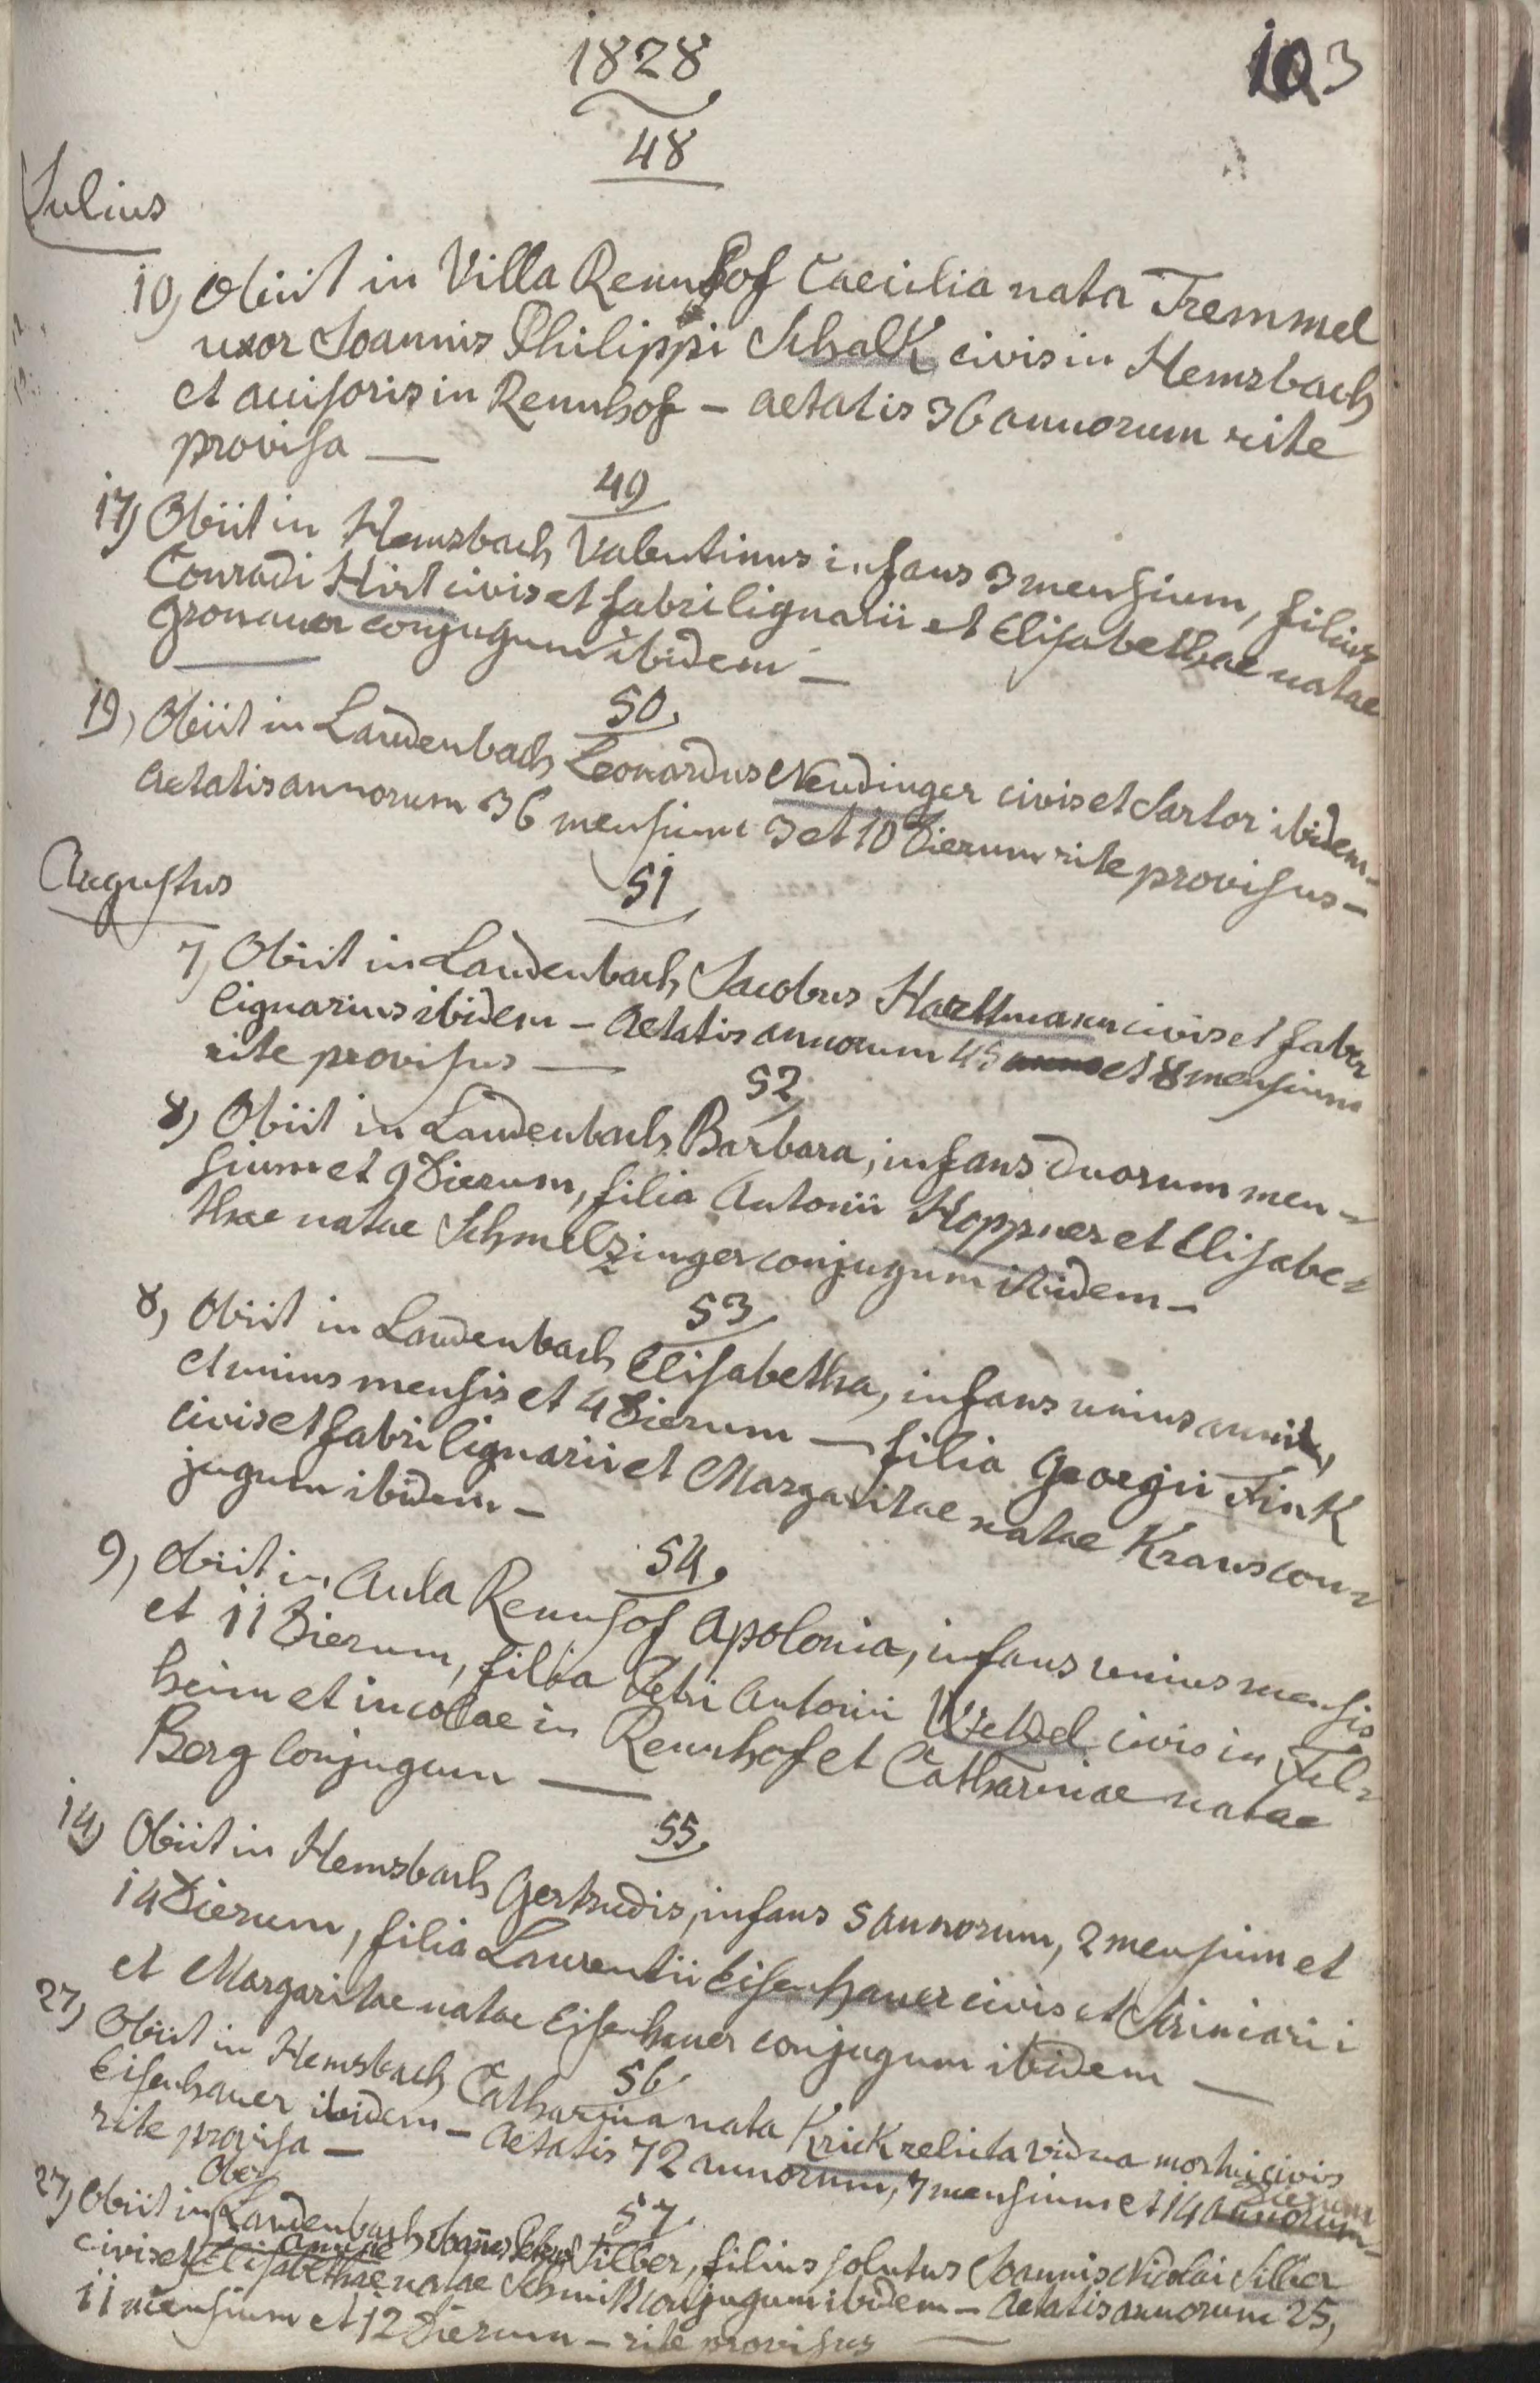 1828
103
48
Julius
10) Obiit in Villa Rennhof Caecilia nata Tremmel
uxor Joannis Philippi Schalk civis in Hemsbach
et accisoris in Rennhof – aetatis 36 annorum rite
provisa —
49
17) Obiit in Hemsbach Valentinus infans 3 mensium, filius
Conradi Hirt civis et fabri lignarii et Elisabethae natae
Gronauer conjugum ibidem –
50
19) Obiit in Laudenbach Leonardus Neudinger civis et Sartor ibidem –
Aetatis annorum 36 mensium 3 et 10 Dierum rite provisus –
Augustus
51
7) Obiit in Laudenbach Jacobus Harttmann civis et faber
lignarius ibidem – Aetatis annorum 45 et 8 mensium
rite provisus —
52
8) Obiit in Laudenbach Barbara, infans duorum men-
sium et 9 Dierum, filia Antonii Hoppner et Elisabe-
thae natae Schmelzinger conjugum ibidem –
53
8) Obiit in Laudenbach Elisabetha, infans unius anni,
et unius mensis et 4 Dierum — filia Georgii Fink
civis et fabri lignarii et Margaritae natae Kraus con-
jugum ibidem –
54.
9) Obiit in Aula Rennhof Apolonia, infans unius mensis
et 11 Dierum, filia Petri Antonii Wetzel civis in
heim et incolae in Rennhof et Catharinae natae
Berg Conjugum —
55
14) Obiit in Hemsbach Gertrudis, infans 5 annorum, 2 mensium et
14 Dierum, filia Laurentii Eisenhauer civis et Scriniarii
et Margaritae natae Eisenhauer conjugum ibidem —
56
27) Obiit in Hemsbach Catharina nata Krick relicta vidua mortui civis
Eisenhauer ibidem – Aetatis 72 annorum, 7 mensium et 14 annorum –
Dierum
rite provisa –
57
Ober
27) Obiit in Laudenbach Joannes Silber, filius solutus Joannis Nicolai Silber
Annae
civis et Elisabethae natae Schmitt conjugum ibidem – Aetatis annorum 25,
11 mensium et 12 Dierum – rite provisus —